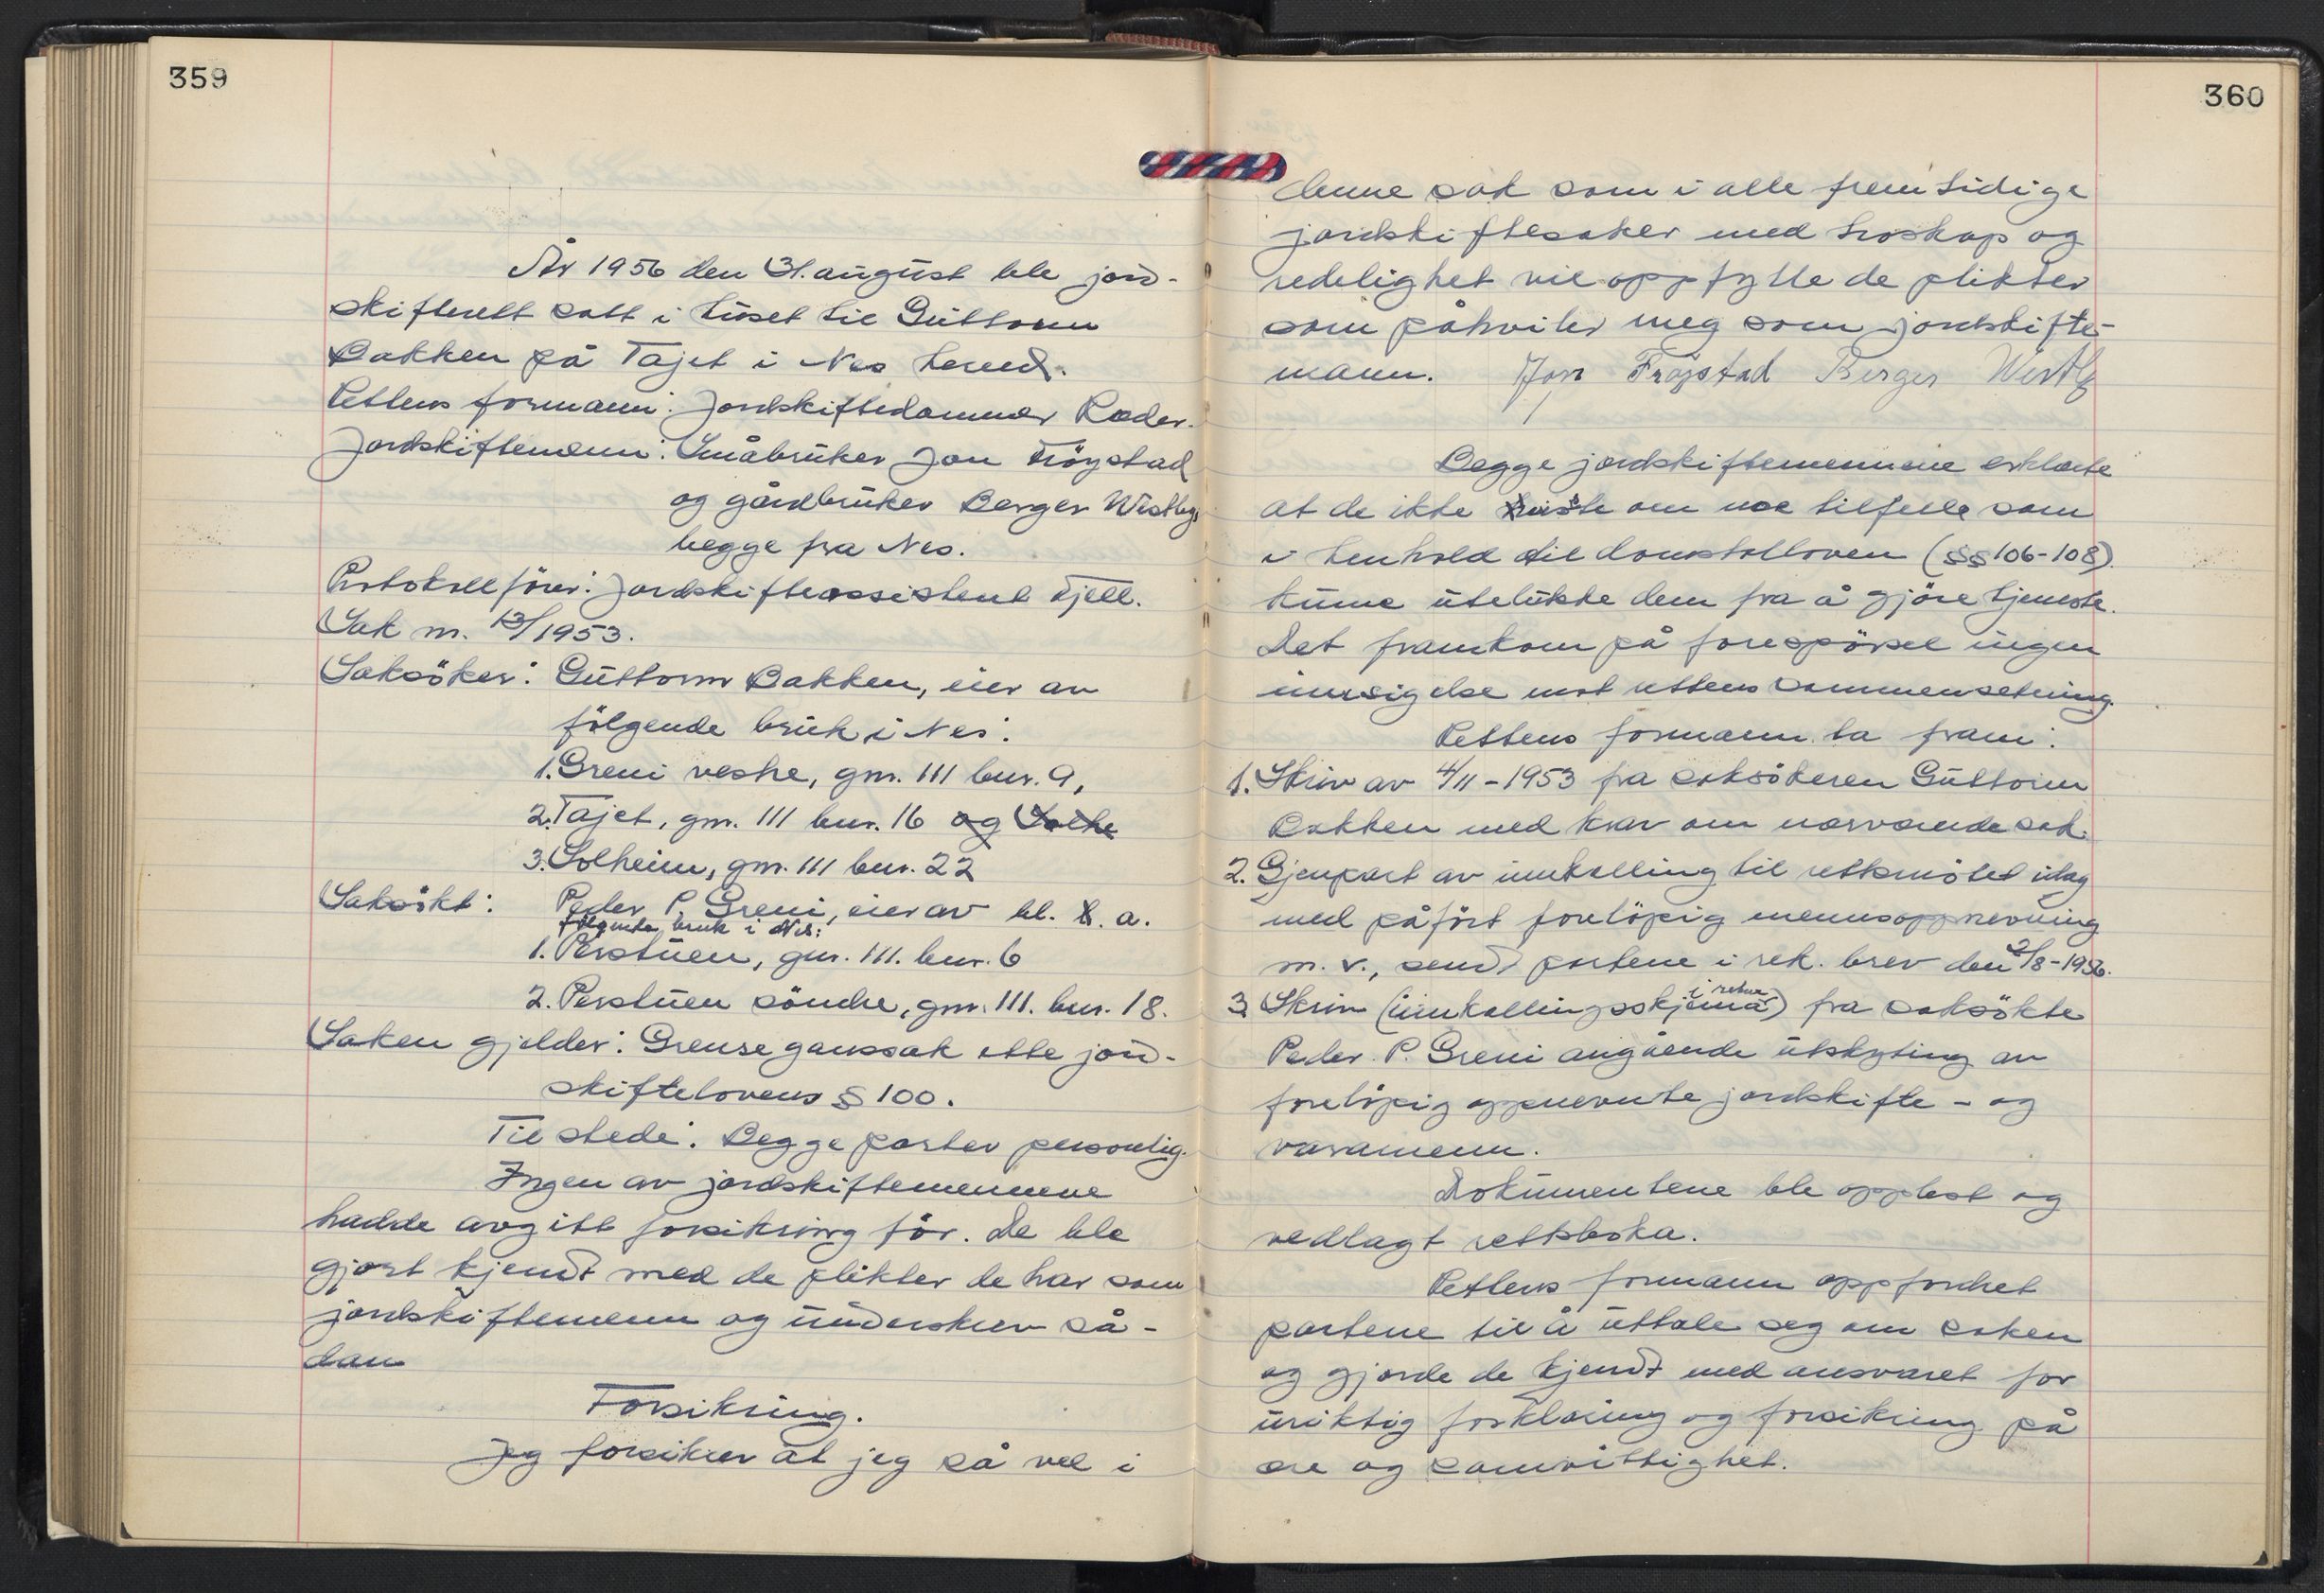 359
År 1956 den 31. august ble jord-
skifterett satt i huset til Guttorm
Bakken på Tajet i Nes herred.
Rettens formann: Jordskiftedommer Ræder.
Jordskiftemenn: Småbruker Jon Frøystad
og gårdbruker Berger Westby
begge fra Nes.
Protokollfører: Jordskifteassistent Fjell.
Sak nr. 13/1953.
Saksøker: Guttorm Bakken, eier av
følgende bruk i Nes:
1. Greni vestre, gnr. 111 bnr. 9,
2. Tajet, gnr. 111 bnr. 16 og Solhe
3. Solheim, gnr. 111 bnr. 22
Saksøkt: Peder P. Greni, eier av bl. a.
følgende bruk i Nes:
1. Perstuen, gnr. 111. bnr. 6
2. Perstuen søndre, gnr. 111. bnr. 18.
Saken gjelder: Grensegangssak etter jord-
skiftelovens § 100.
Til stede: Begge parter personlig.
Ingen av jordskiftemennene
hadde avgitt forsikring før. De ble
gjort kjendt med de plikter de har som
jordskiftemenn og underskrev så-
dan
Forsikring.
Jeg forsikrer at jeg så vel i
360
denne sak som i alle fremtidige
jordskiftesaker med troskap og
redelighet vil oppfylle de plikter
som påhviler meg som jordskifte-
mann. Jon Frøystad Berger Westby
Begge jordskiftemennene erklærte
at de ikke visste om noe tilfelle som
i henhold til domstolloven (§§ 106-108)
kunne utelukke dem fra å gjøre tjeneste.
Det framkom på forespørsel ingen
innsigelse mot rettens sammensetning.
Rettens formann la fram:
1. Skriv av 4/11-1953 fra saksøkeren Guttorm
Bakken med krav om nærværende sak.
2. Gjenpart av innkalling til rettsmøtet idag
med påført foreløpig mennsoppnevning
m. v., sendt partene i rek. brev den 2/8-1956.
3. Skriv (innkallingsskjema i retur) fra saksøkte
Peder P. Greni angående utskyting av
foreløpig oppnevnte jordskifte- og
varamenn.
Dokumentene ble opplest og
vedlagt rettsboka.
Rettens formann oppfordret
partene til å uttale seg om saken
og gjorde de kjendt med ansvaret for
uriktig forklaring og forsikring på
ære og samvittighet.